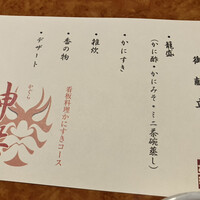 御献立
・籠盛
(かに酢・かにみそ・ミニ茶碗蒸し)
・かにすき
・雑炊
・香の物
・デザート
看板料理かにすきコース
かぐら